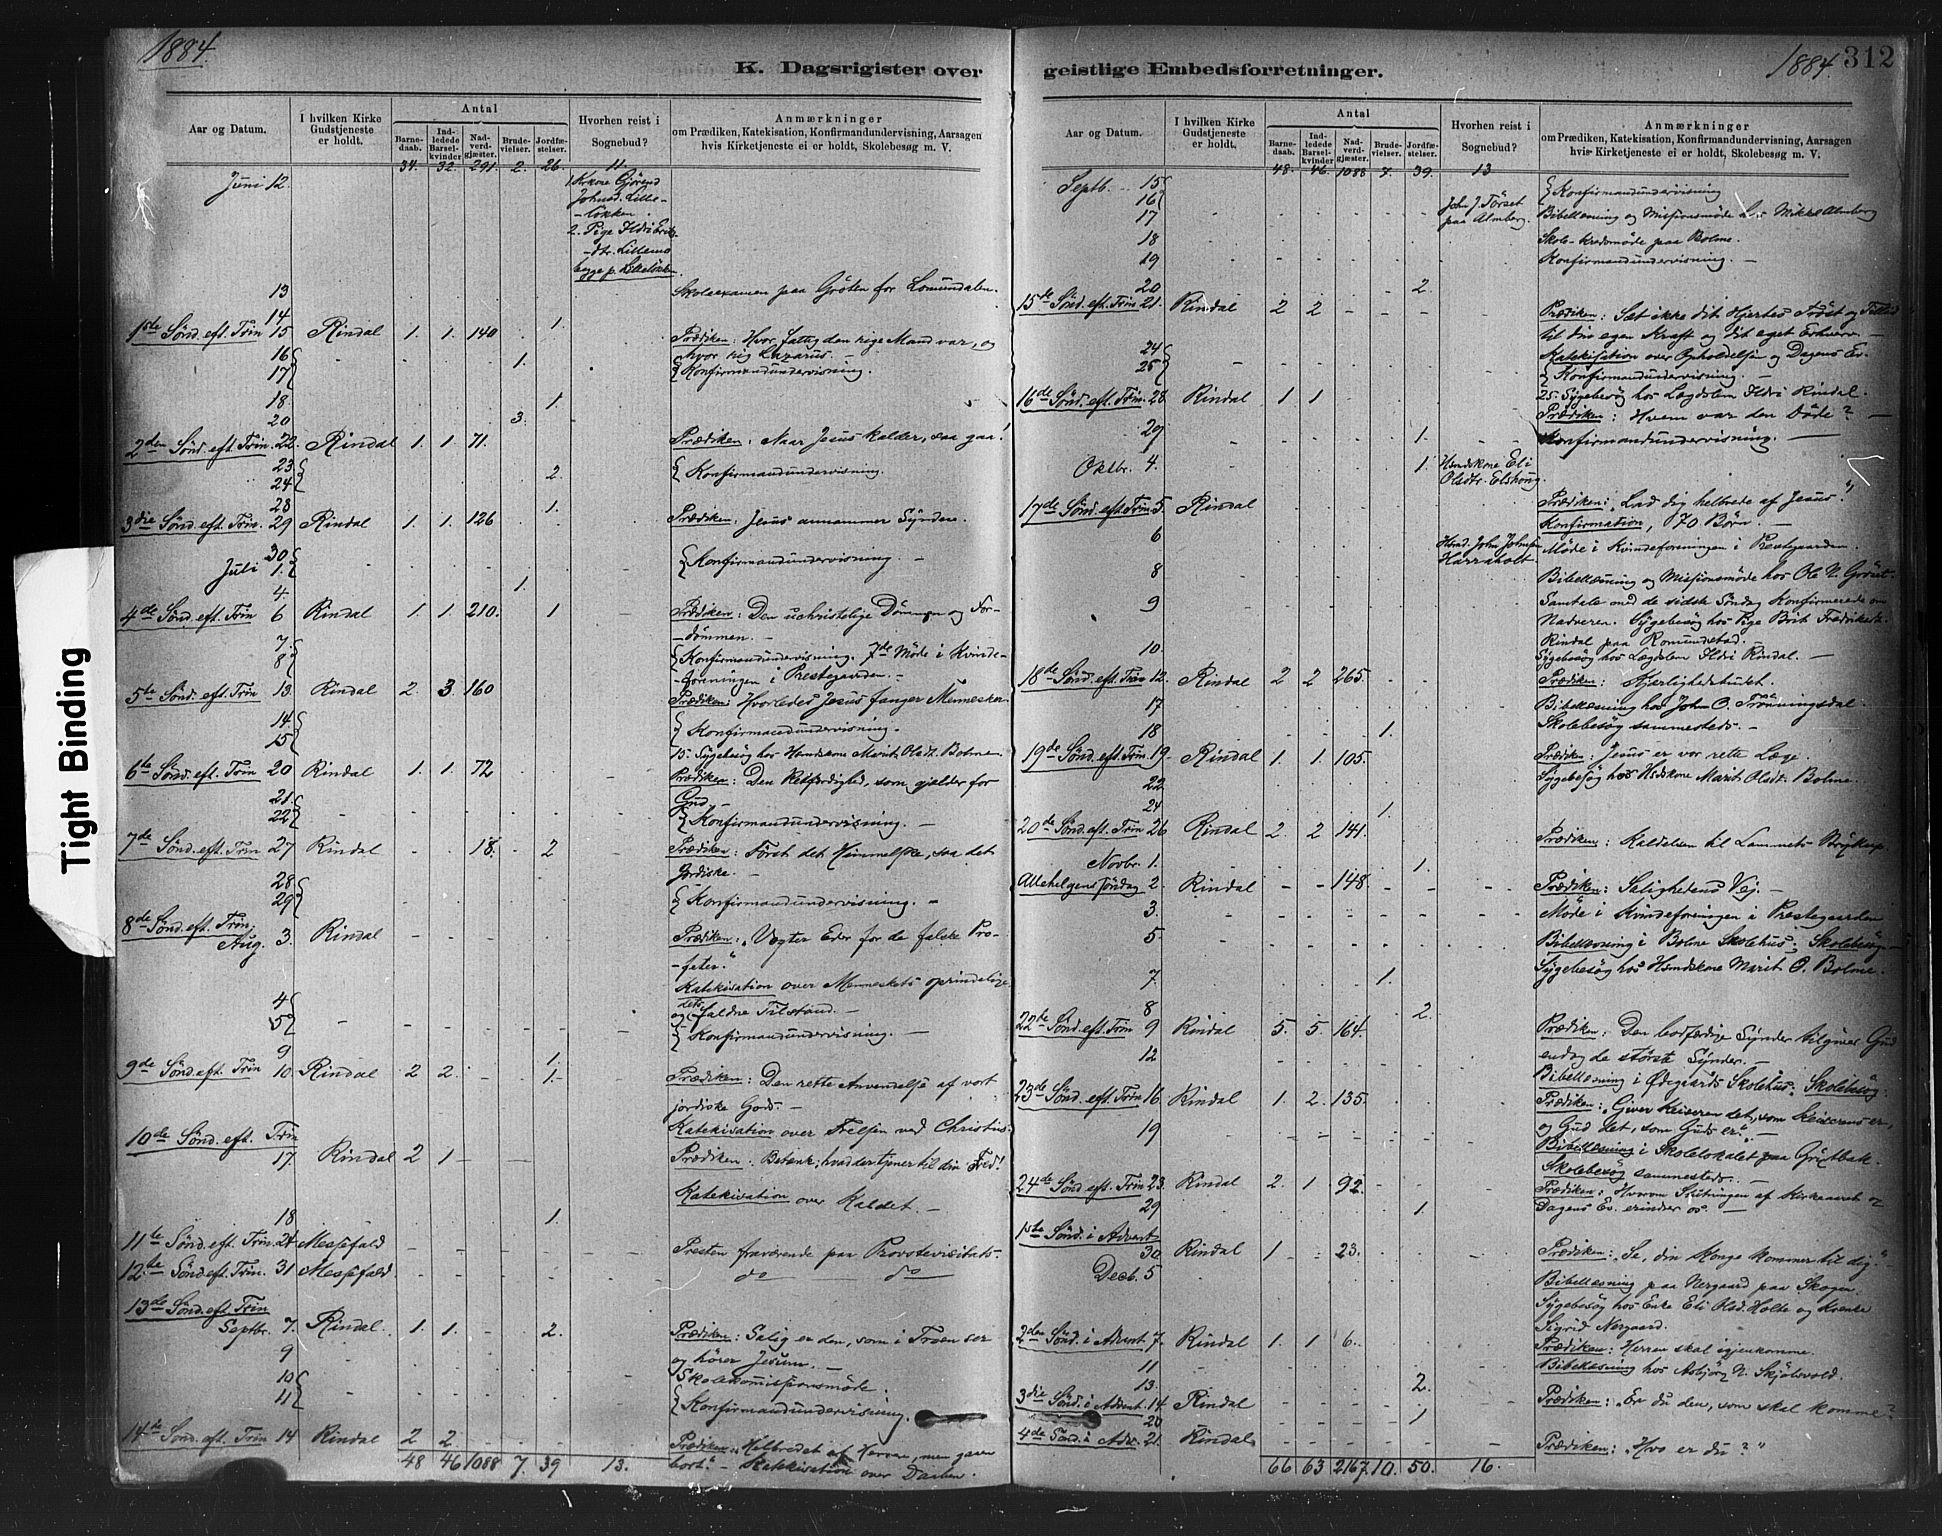 1884.
K. Dagsrigister over
Aar og Datum.
I hvilken Kirke Gudstjeneste er holdt.
Antal
Barnedaab.
Indledede Barselkvinder
Nadverdgjæster.
Brudevielser.
Jordfæstelser.
Hvorhen reist i Sognebud?
Anmærkninger
om Prædiken, Katekisation, Konfirmandundervisning, Aarsagen
hvis Kirketjeneste ei er holdt, Skolebesøg m. V.
34. 32. 291. 2. 26. 11.
Juni 12. 1 Kvinde Gjørend
Johnsd. Lille-
-løkken.
2. Pige Ildri Erik-
-dtr. Lillemo
begge p. Lilleløkken.
13 Skoleexamen paa Grøten for Lomundalen.
14 1.
1ste Sønd. eft. Trin 15 Rindal 1. 1. 140 Prædiken: Hvor fattig den rige Mand var, og
hvor rig Lazarus. —
16 1.
17 Konfirmandundervisning.
18 1.
20 3.
2den Sønd. eft. Trin. 22. Rindal 1. 1. 71. Prædiken: Naar Jesus kalder, saa gaa!
23
24 2. Konfirmandundervisning.
28 1.
3die Sønd. eft. Trin. 29 Rindal 1. 1. 126 Prædiken: Jesus annammer Syndere.
30
Juli 1. Konfirmandundervisning. —
4. 1.
4de Sønd. eft. Trin 6 Rindal 1. 1. 210. 1 Prædiken: Den uchristelige Dømmen og For-
-dømmen. —
7.
8 Konfirmandundervisning. 7de Møde i Kvinde-
-foreningen i Prestegaarden. —
5te Sønd. eft. Trin 13. Rindal 2. 3. 160 Prædiken: Hvorledes Jesus fanger Mennesker.
14.
15 Konfirmandundervisning. —
15. Sygebesøg hos Hsmdskone Marit Olsdt. Bolme.
6te Sønd. eft. Trin 20 Rindal 1. 1. 72 Prædiken: Den Retfærdighed, som gjælder for
Gud —
21.
22 Konfirmandundervisning. —
7de Sønd. eft. Trin 27 Rindal 18. 2 Prædiken: Først det Himmelske, saa det
Jordiske. —
28
29 Konfirmandundervisning. —
8de Sønd. eft. Trin.
Aug. 3. Rindal Prædiken: „Vogter Eder for de falske Pro-
-feter."
Katekisation over Menneskets oprindelige
og dets faldne Tilstand. —
4
5 Konfirmandundervisning. —
9 1.
9de Sønd. eft. Trin 10. Rindal 2 2. 1. Prædiken: Den rette Anvendelse af vort
jordiske Gods. —
Katekisation over Frelsen ved Christus.
10de Sønd. eft. Trin
17. Rindal 2 1 Prædiken: Betænk, hvad der tjener til din Fred!
Katekisation over Kaldet. —
18 1.
11te Sønd. eft. Trin. 24 Messefald Presten fraværende paa Provstevisitats.
12te Sønd. eft. Trin. 31 Messefald do do
13de Sønd. eft. Trin
Septbr. 7. Rindal. 1. 1. 2. Prædiken: Salig er den, som i Troen ser
og hører Jesum. —
9 Skolekommissionsmøde.
10
11 Konfirmandundervisning.
14de Sønd. eft. Trin 14 Rindal 2 2. Prædiken: „Helbredet af Herren, men gaaen
bort." — Katekisation over Daaben.
48 46 1088 7. 39 13.
geistlige Embedsforretninger.
1884.
312
Aar og Datum.
I hvilken Kirke Gudstjeneste er holdt.
Antal
Barnedaab.
Indledede Barselkvinder
Nadverdgjæster.
Brudevielser.
Jordfæstelser.
Hvorhen reist i Sognebud?
Anmærkninger
om Prædiken, Katekisation, Konfirmandundervisning, Aarsagen
hvis Kirketjeneste ei er holdt, Skolebesøg m. V.
48. 46. 1088 7. 39. 13
Septb. 15
16 Konfirmandundervisning
17 John J. Tørset
paa Almberg. Bibellæsning og Missionsmøde hos Mikkel Almberg
18 Skole-Kredsmøde paa Bolme.
19 Konfirmandundervisning. —
20 2.
15de Sønd. eft. Trin 21. Rindal 2 2 Prædiken: Sæt ikke dit Hjertes Trøst og Tillid
til din egen Kraft og dit eget Erhverv. —
Katekisation over Opholdelsen og Dagens Ev.
24
25 Konfirmandundervisning. —
25. Sygebesøg hos Lægdslem Ildri Rindal.
16de Sønd. eft. Trin. 28 Rindal 1 1 Prædiken: Hvem var den Døde? —
29 1. Konfirmandundervisning. —
Oktbr. 4. 1. Hsmdskone Eli
Olsdtr. Elshoug.
17de Sønd. eft. Trin 5. Rindal Prædiken: „Lad dig helbrede af Jesus."
Konfirmation, 70 Børn. —
6 Hsmd. John Johnsen
Harraholt Møde i Kvindeforeningen i Prestegaarden.
8 Bibellæsning og Missionsmøde hos Ole N. Grøset.
9 Samtale med de sidste Søndag Konfirmerede om
Nadveren. Sygebesøg hos Pige Brit Fredriksdt.
Rindal paa Romundstad.
10. Sygebesøg hos Lægdslem Ildri Rindal. —
18de Sønd. eft. Trin 12. Rindal 2 2 265. Prædiken: Kjærlighedsbudet.
17 Bibellæsning hos John O. Trønningsdal.
Skolebesøg sammesteds. —
18 1.
19de Sønd. eft. Trin. 19. Rindal 1. 1. 105. Prædiken: Jesus er vor rette Læge.
22 Sygebesøg hos Hsdskone Marit Olsdt. Bolme.
24 1.
20de Sønd. eft. Trin 26 Rindal 2. 2 141. Prædiken: Kaldelsen til Lammets Bryllup.
Novbr. 1. 1.
Allehelgenssøndag 2. Rindal 148. Prædiken: Salighedens Vej. —
3. Møde i Kvindeforeningen i Prestegaarden
5 Bibellæsning i Bolme Skolehus; Skolebesøg. —
Sygebesøg hos Hsmdskone Marit O. Bolme.
7. 1.
8 2.
22de Sønd. eft. Trin 9 Rindal 5. 5. 164. Prædiken: Den bodfærdige Synder tilgiver Gud
endog de største Synder. —
12 Bibellæsning i Ødegaards Skolehus. Skolebesøg.
23de Sønd. eft. Trin 16 Rindal 1. 2. 135. Prædiken: „Giver Keiseren det, som Keiserens er,
og Gud det, som Guds er". —
19 Bibellæsning i Skolelokalet paa Grøtbak.
Skolebesøg sammesteds. —
24de Sønd. eft. Trin 23. Rindal 2. 1 92. Prædiken: Hvorom Slutningen af Kirkeaaret og
Dagens Ev. erindrer os. —
29 1.
1ste Sønd. i Advent
30 Rindal 1 23. Prædiken: „Se, din Konge kommer til dig."
Decb. 5 Bibellæsning paa Nergaard paa Skogen.
Sygebesøg hos Enke Eli Olsd. Holte og Kvinde
Sigrid Nergaard.
2den Sønd. i Advent 7. Rindal 1 1 6. Prædiken: Herren skal igjenkomme.
11 Bibellæsning hos Asbjørn N. Skjølsvold.
13. 2.
3die Sønd. i Advent 14 Rindal Prædiken: „Er du den, som skal komme?"
20 1
4de Sønd. i Adv. 21. Rindal Prædiken: „Hvo er du?"
66 63 2167. 10. 50. 16.
Tight Binding